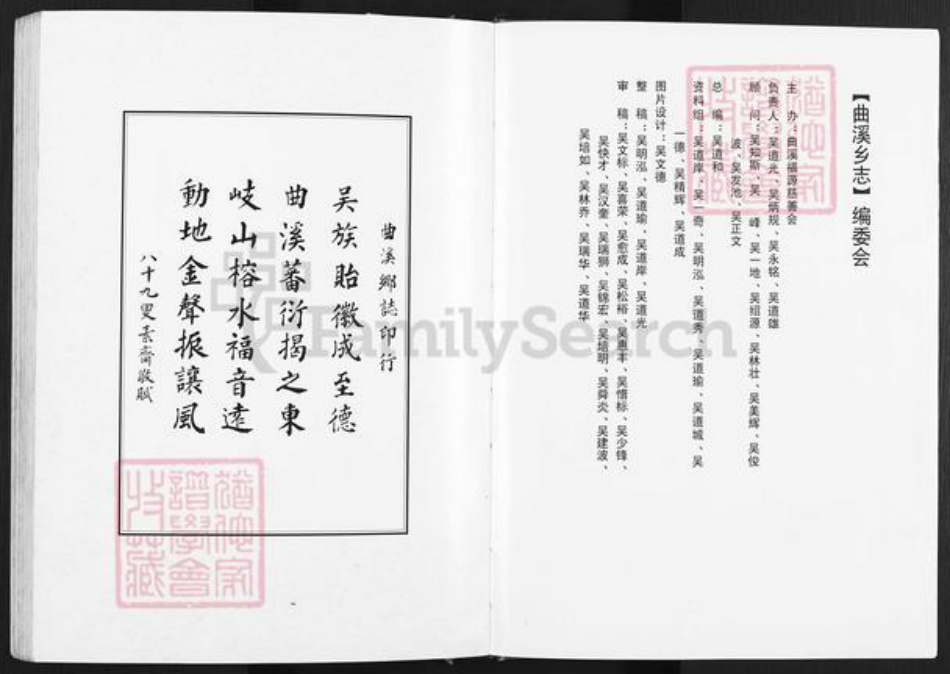 【曲溪乡志】编委会
主　办：曲溪福源慈善会
负责人：吴道光、吴炳规、吴永铭、吴道雄
顾　问：吴知斯、吴　峰、吴一地、吴组源、吴林壮、吴美辉、吴俊
波、吴发池、吴正文
总　编：吴道和
资料组：吴道岸、吴一奇、吴明泓、吴道秀、吴道瑜、吴道城、吴
一德、吴精辉、吴道成
图片设计：吴文德
整　稿：吴明泓、吴道瑜、吴道岸、吴道光
审　稿：吴文标、吴喜荣、吴愈成、吴松裕、吴惠丰、吴惜标、吴少锋、
吴快才、吴汉奎、吴瑞狮、吴锦宏、吴培明、吴舜炎、吴建波、
吴培如、吴林乔、吴瑞华、吴道华
曲溪鄉誌印行
吴族貽徽成至德
曲溪蕃衍揭之東
岐山榕水福音遠
動地金聲振讓風
八十九叟素齋敬賦
FamilySearch